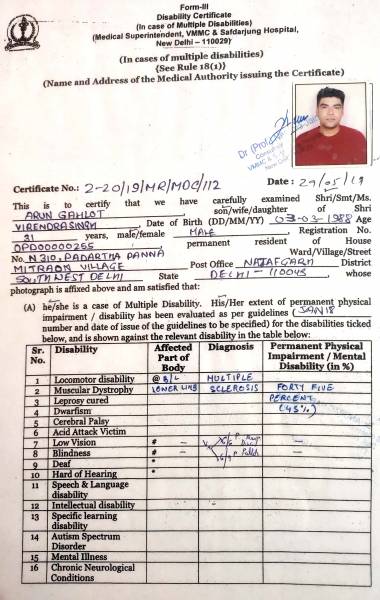 Form-III
Disability Certificate
(In case of Multiple Disabilities)
(Medical Superintendent, VMMC & Safdarjung Hospital,
New Delhi – 110029)
(In cases of multiple disabilities)
{See Rule 18(1)}
(Name and Address of the Medical Authority issuing the Certificate)
Dr (Prof.)
Certificate No.: 2-20/19/MR/MOC/112 Date: 29/05/19
This is to certify that we have carefully examined Shri/Smt/Ms.
ARUN GAHLOT son/wife/daughter of Shri
VIRENDRASINGH, Date of Birth (DD/MM/YY) 03-03-1988 Age
31 years, male/female MALE, Registration No.
OPD00000265 permanent resident of House
No. N 310, PADARTHA PANNA Ward/Village/Street
MITRAON VILLAGE Post Office NAJAFGARH District
SOUTH WEST DELHI State DELHI - 110043 whose
photograph is affixed above and am satisfied that:
(A) he/she is a case of Multiple Disability. His/Her extent of permanent physical
impairment / disability has been evaluated as per guidelines (JAN 18
number and date of issue of the guidelines to be specified) for the disabilities ticked
below, and is shown against the relevant disability in the table below:
Sr. No. Disability Affected Part of Body Diagnosis Permanent Physical Impairment / Mental Disability (in %)
1 Locomotor disability @ B/L MULTIPLE
2 Muscular Dystrophy LOWER LIMB SCLEROSIS FORTY FIVE
3 Leprosy cured PERCENT
4 Dwarfism (45%)
5 Cerebral Palsy
6 Acid Attack Victim
7 Low Vision # – –
8 Blindness # – –
9 Deaf *
10 Hard of Hearing *
11 Speech & Language disability
12 Intellectual disability
13 Specific learning disability
14 Autism Spectrum Disorder
15 Mental Illness
16 Chronic Neurological Conditions